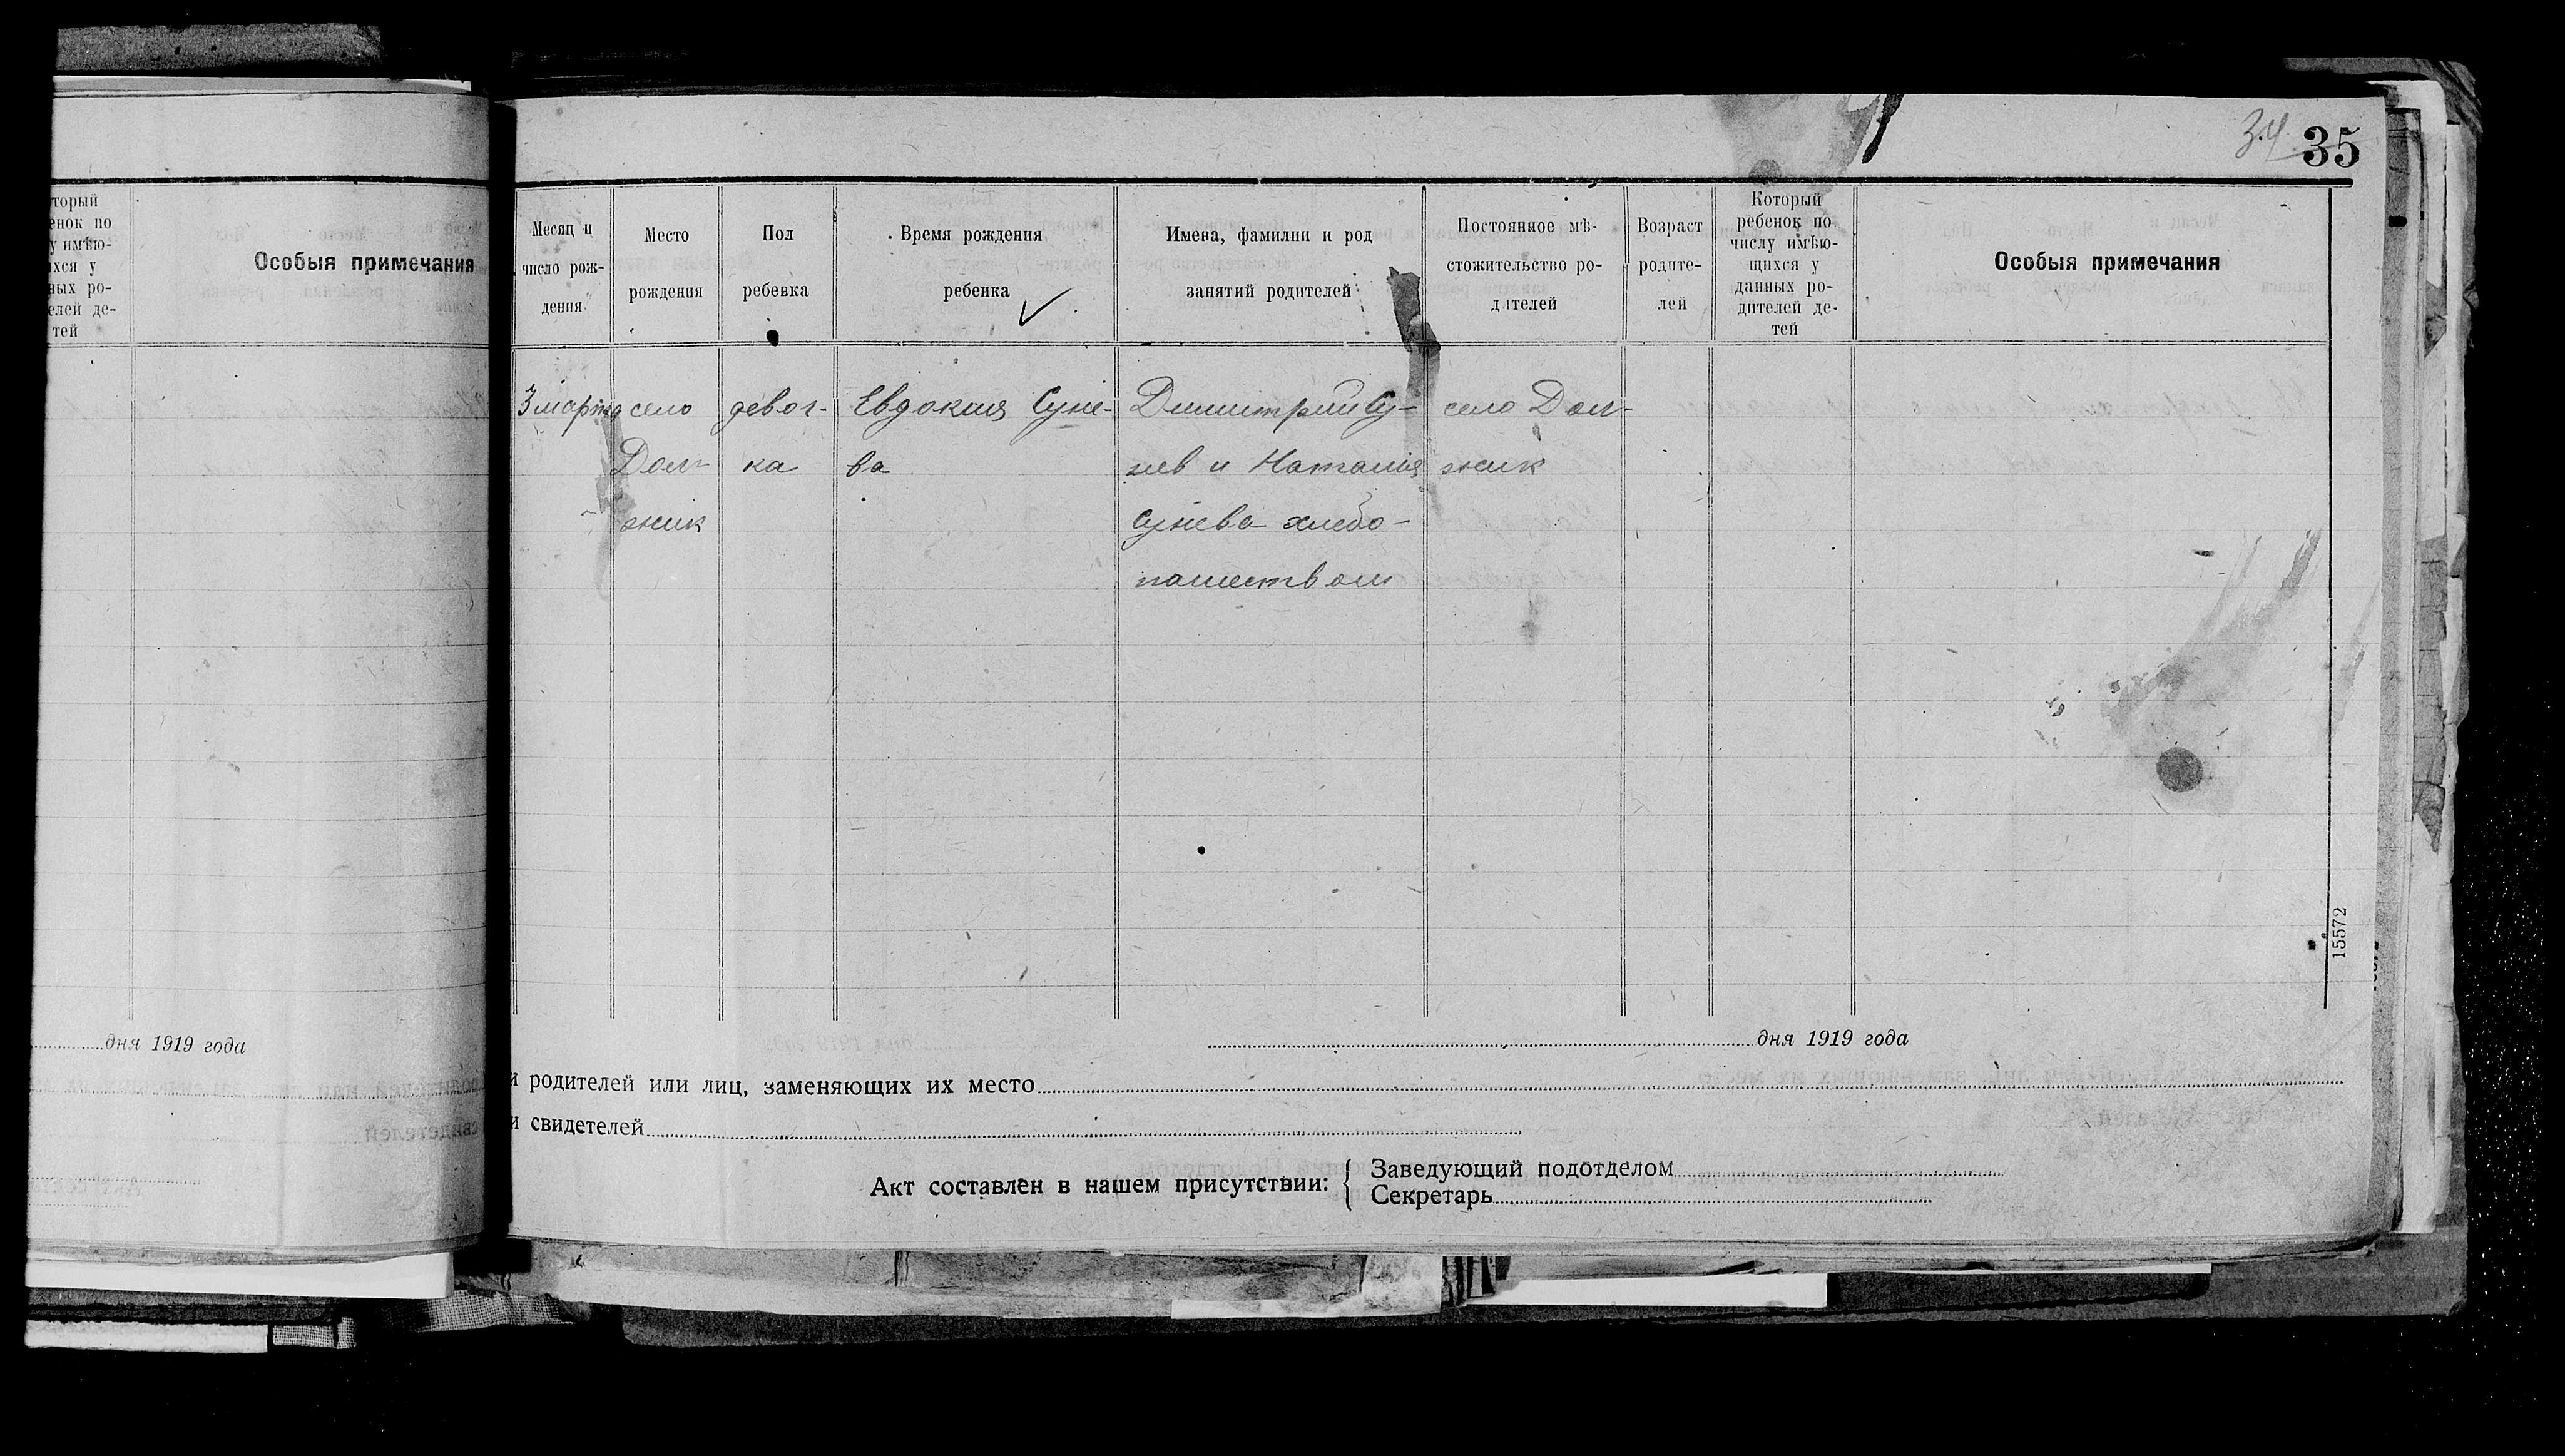 торый
енок по
у имѣю-
хся у
ных ро-
елей де-
тей
Особыя примечания
дня 1919 года
34 35
Месяц и
число рож-
дения
Место
рождения
Пол
ребенка
Время рождения
ребенка
Имена, фамилии и род
занятий родителей
Постоянное мѣ-
стожительство ро-
дителей
Возраст
родите-
лей
Который
ребенок по
числу имѣю-
щихся у
данных ро-
дителей де-
тей
Особыя примечания
3 марта село девоч- Евдокия Суне- Димитрий Су- село Дол-
Дол- ка ва нев и Наталия жик
жик Сунева хлебо-
пашеством
15572
дня 1919 года
и родителей или лиц, заменяющих их место
и свидетелей
Акт составлен в нашем присутствии:
Заведующий подотделом
Секретарь